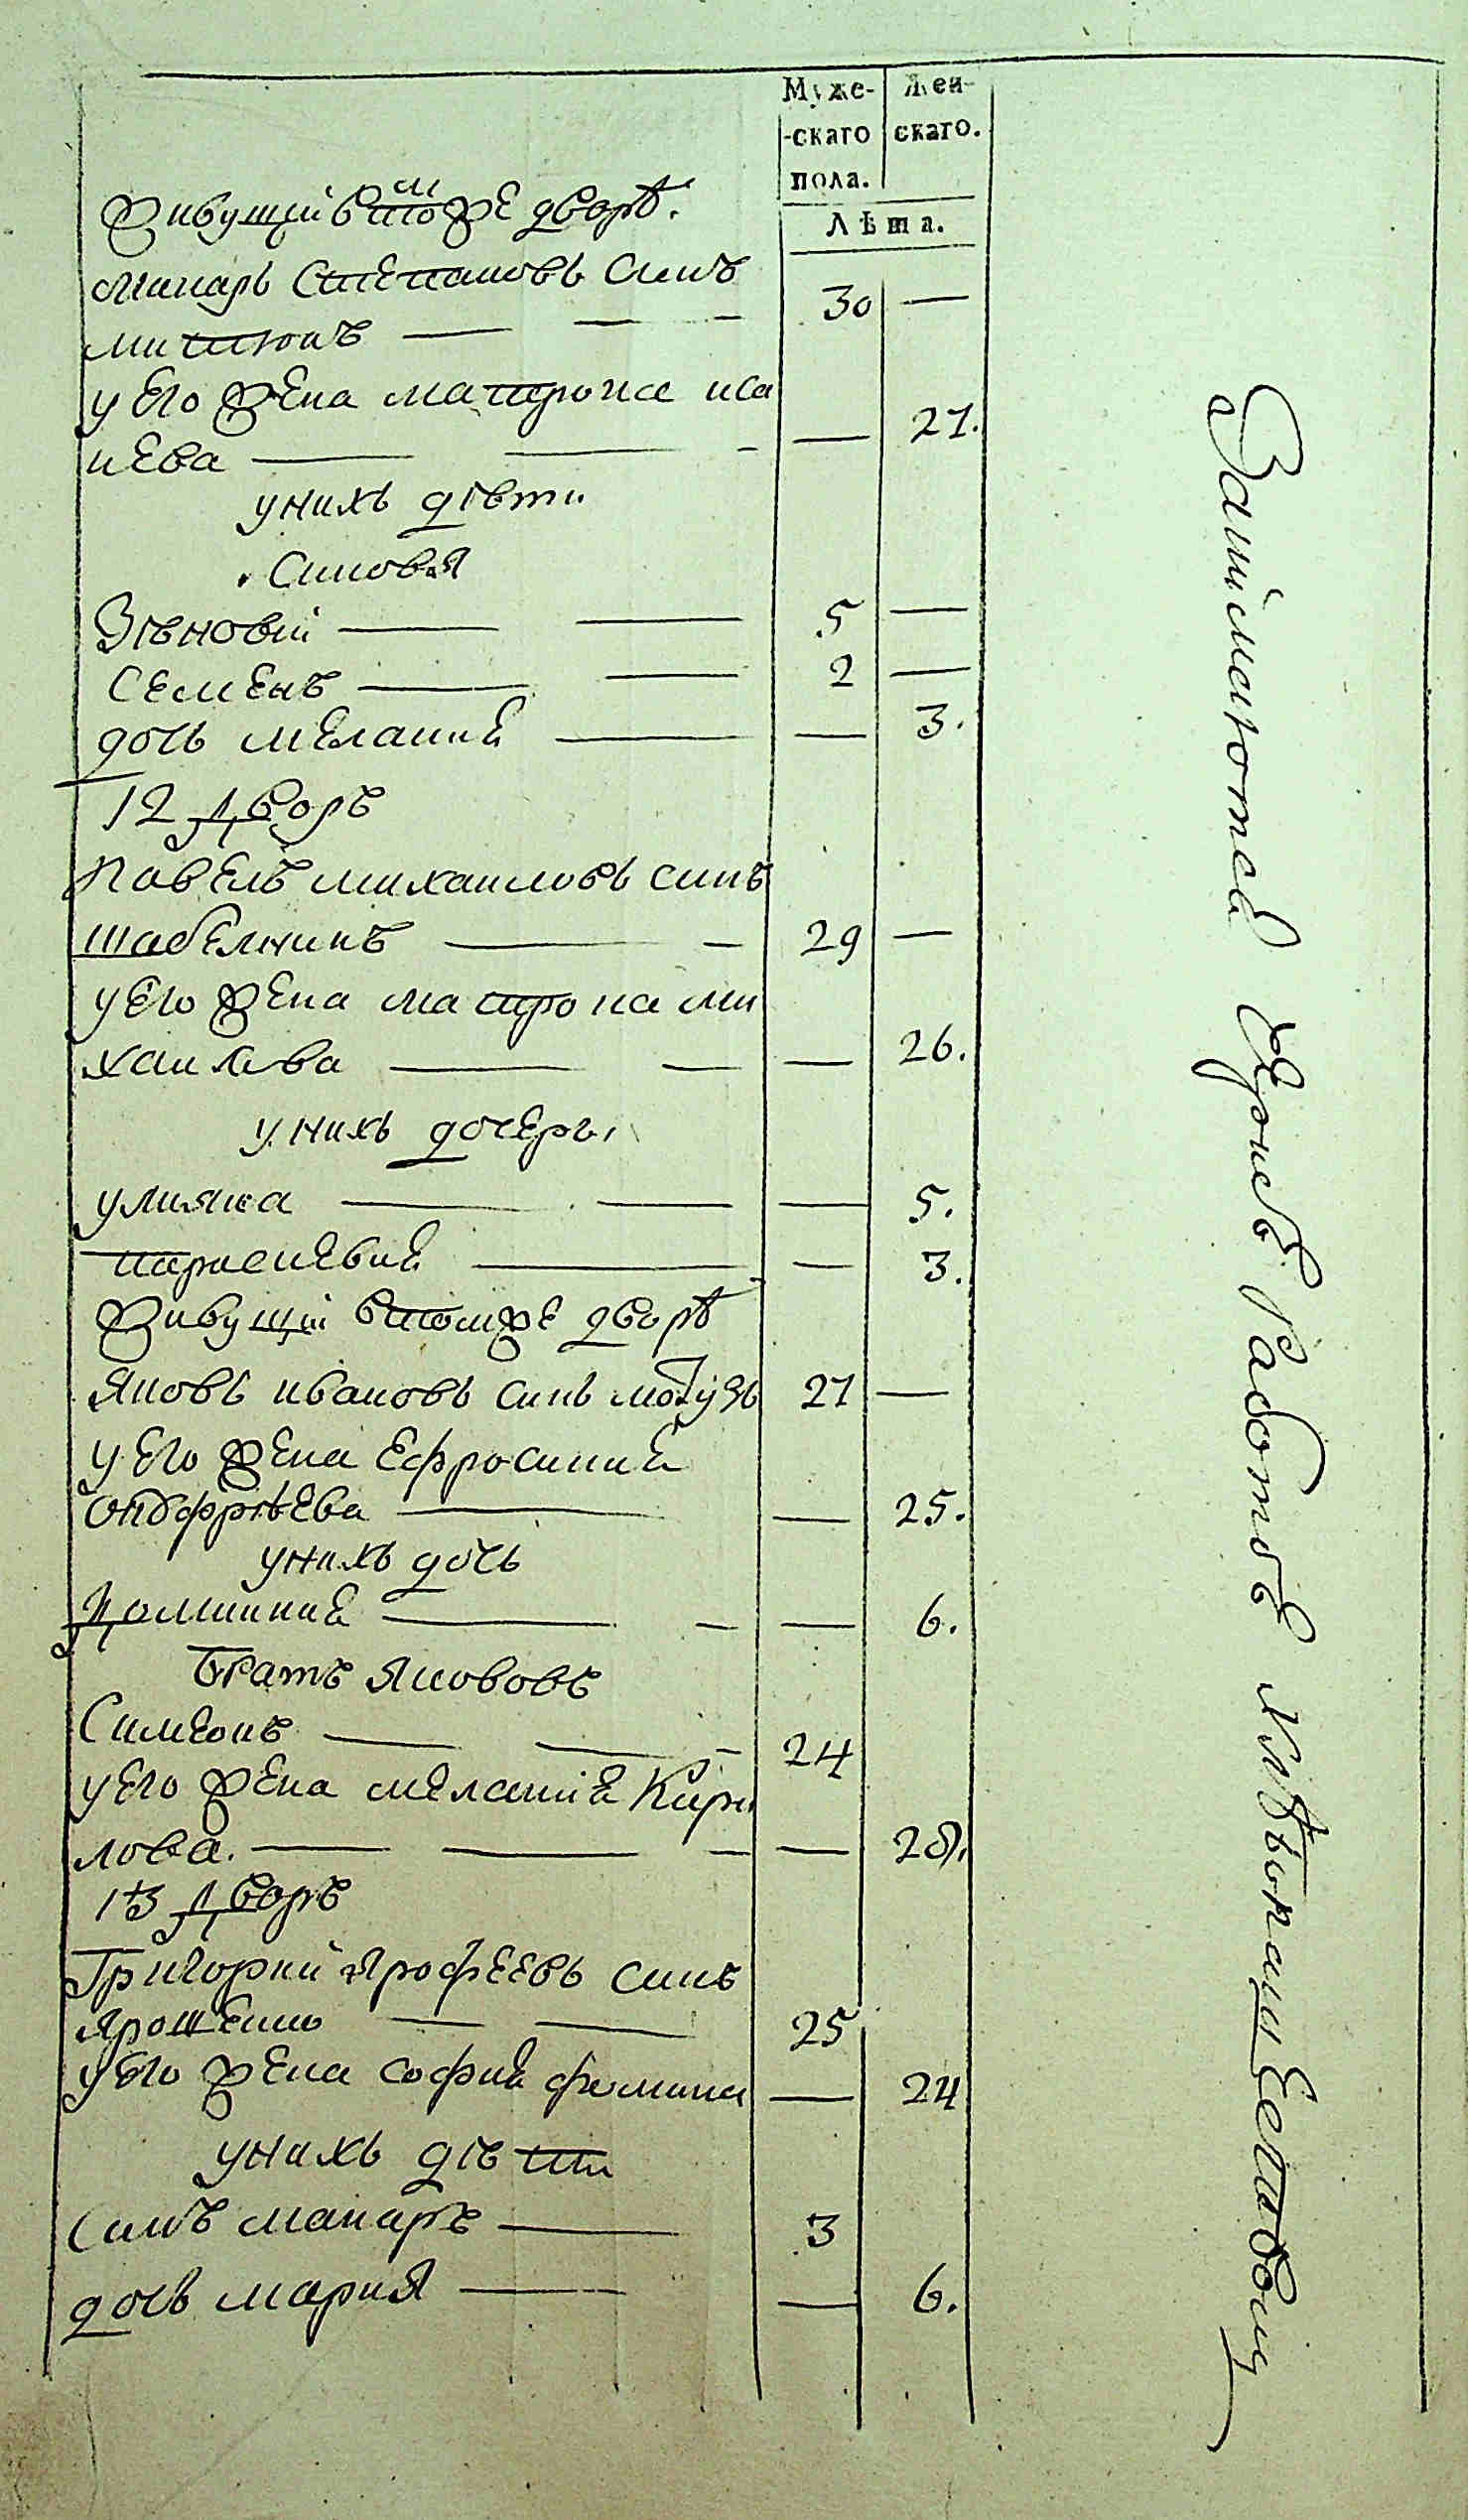 Муже-
-скаго
пола.
Жен-
скаго.
Лѣта.
Живущій втомже дворѣ.
Макарь Степановь Синъ
Митюкъ — — — 30 —
у Его Жена матрона иса
иева — — — — 27.
унихь дѣти
Синовья
Зѣновій — — 5 —
Семенъ — — 2 —
дочь меланиѣ — — 3.
12 Дворъ
Павелъ михаиловь синъ
шабелникъ — — 29 —
у Его Жена матрона ми
хаилова — — — 26.
унихь дочеры
улияна — — — 5.
параскевиѣ — — 3.
Живущій втомже дворѣ
Яковь ивановь синь мотузь 27 —
у Его Жена Ефросиниѣ
Онофрѣева — — 25.
унихь дочь
Домникиѣ — — — 6.
Братъ Якововъ
Симеонъ — — — 24
у Его Жена меланиѣ Кири
лова. — — — — 28.
13 Дворъ
Григорий ярофеевь синъ
ярошенко — — 25
у Его Жена софиѣ фомина — 24
унихь дѣти
Синъ макаръ — 3
дочь мария — — 6.
работъ